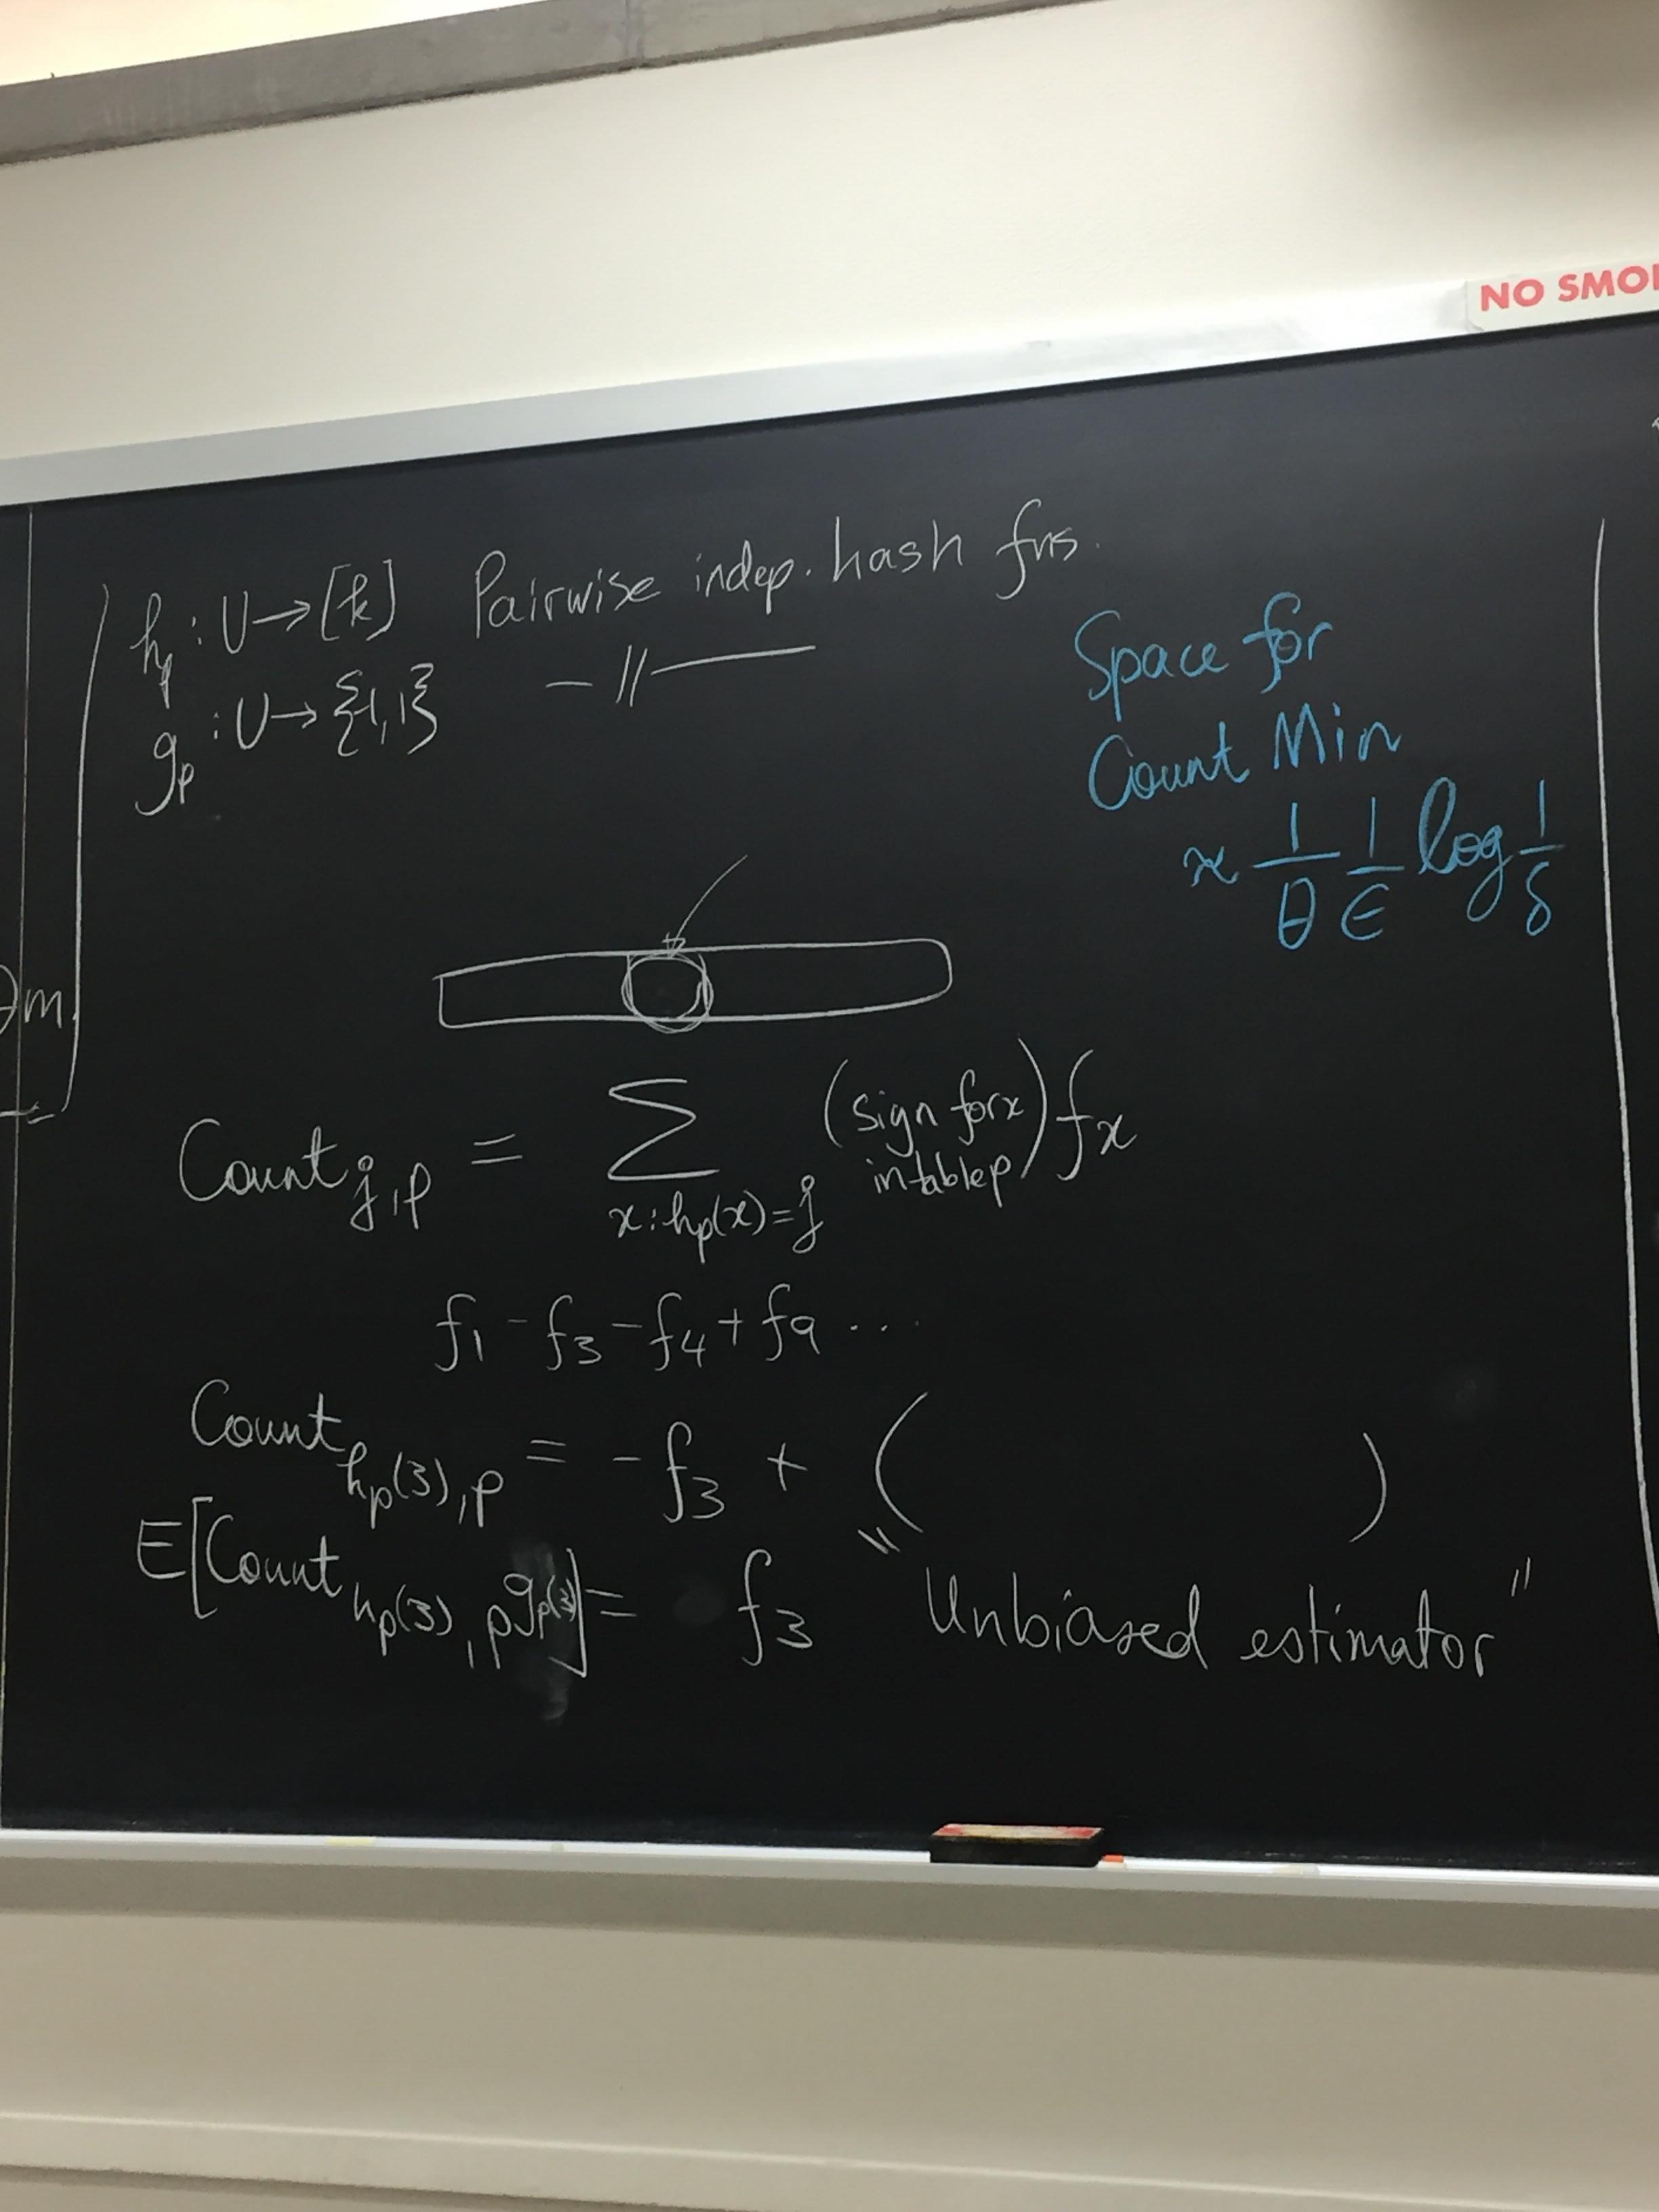 NO SMO
h_p : U → [k] Pairwise indep. hash fns.
g_p : U → {-1, 1} — // ——
Space for
Count Min
≈ 1/θ 1/ε log 1/δ
θm.
Count_{j,p} = Σ_{x : h_p(x) = j} (sign for x in table p) f_x
f_1 - f_3 - f_4 + f_9 ...
Count_{h_p(3), p} = - f_3 + ( )
E[Count_{h_p(3), p} g_p(3)] = f_3 "Unbiased estimator"